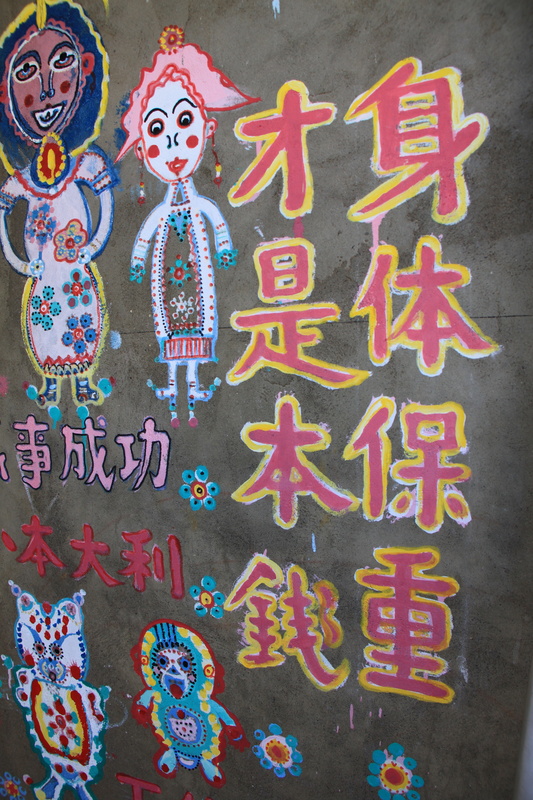 身体保重
才是本銭
事成功
本大利